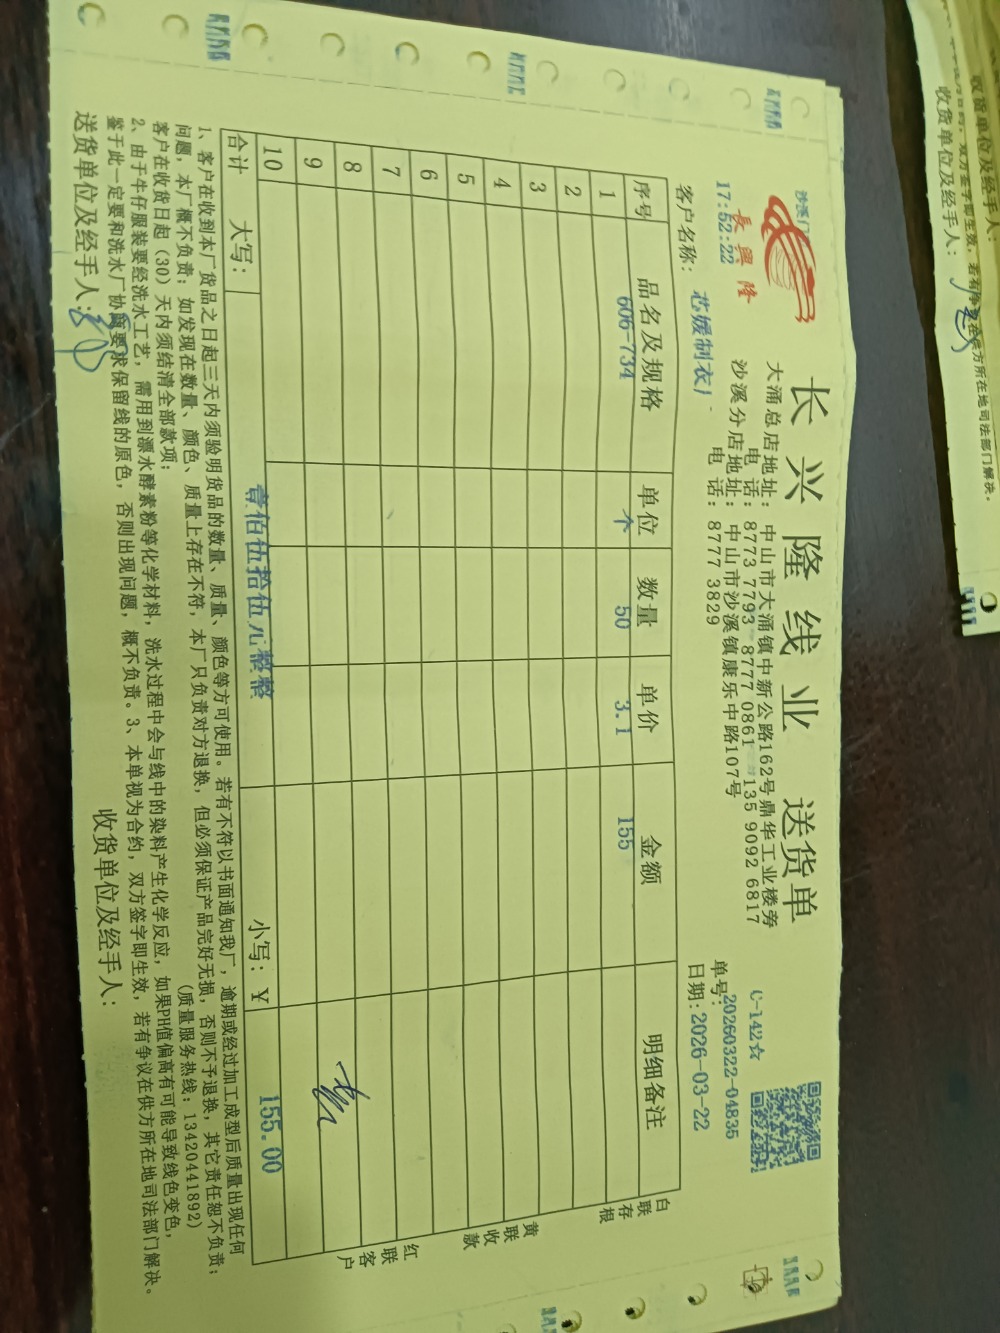 长兴隆线业 送货单
長興隆
沙溪门
17:52:22
大涌总店地址：中山市大涌镇中新公路162号鼎华工业楼旁
电 话：8773 7793 8777 0861 135 9092 6817
沙溪分店地址：中山市沙溪镇康乐中路107号
电 话：8777 3829
C-142☆
单号:20260322-04835
客户名称：芯媛制衣厂
日期:2026-03-22
序号 品名及规格 单位 数量 单价 金额 明细备注
1 606-734 个 50 3.1 155
2
3
4
5
6
7
8
9
10
合计 大写：壹佰伍拾伍元整整 小写：￥ 155.00
白联存根
黄联收款
红联客户
1、客户在收到本厂货品之日起三天内须验明货品的数量、质量、颜色等方可使用。若有不符以书面通知我厂，逾期或经过加工成型后质量出现任何
问题，本厂概不负责；如发现在数量、颜色、质量上存在不符，本厂只负责对方退换，但必须保证产品完好无损，否则不予退换，其它责任恕不负责；
客户在收货日起（30）天内须结清全部款项； （质量服务热线：13420441892）
2、由于牛仔服装要经洗水工艺，需用到漂水酵素粉等化学材料，洗水过程中会与线中的染料产生化学反应，如果PH值偏高有可能导致线色变色，
鉴于此一定要和洗水厂协商要求保留线的原色，否则出现问题，概不负责。3、本单视为合约，双方签字即生效，若有争议在供方所在地司法部门解决。
送货单位及经手人： 收货单位及经手人：
收货单位及经手人：
双方签字即生效，若有争议在供方所在地司法部门解决。
收货单位及经手人：